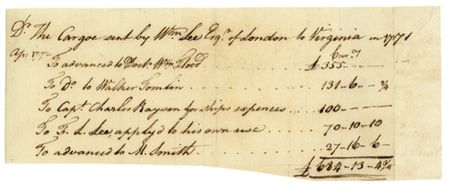 Dr. The Cargoe sent by Wm Lee Esqr. of London to Virginia in 1771
Apr. 1772
To advanced to Doctr. Wm Flood £355 ... ..
To Do. to Walker Tomlin ........ 131-6-- ¾
To Capt. Charles Rayson for ships expences .. 100 --
To F. L. Lee, apply'd to his own use ...... 70-10-10
To advanced to M. Smith ........ 27-16-6-
£684-13-4¾